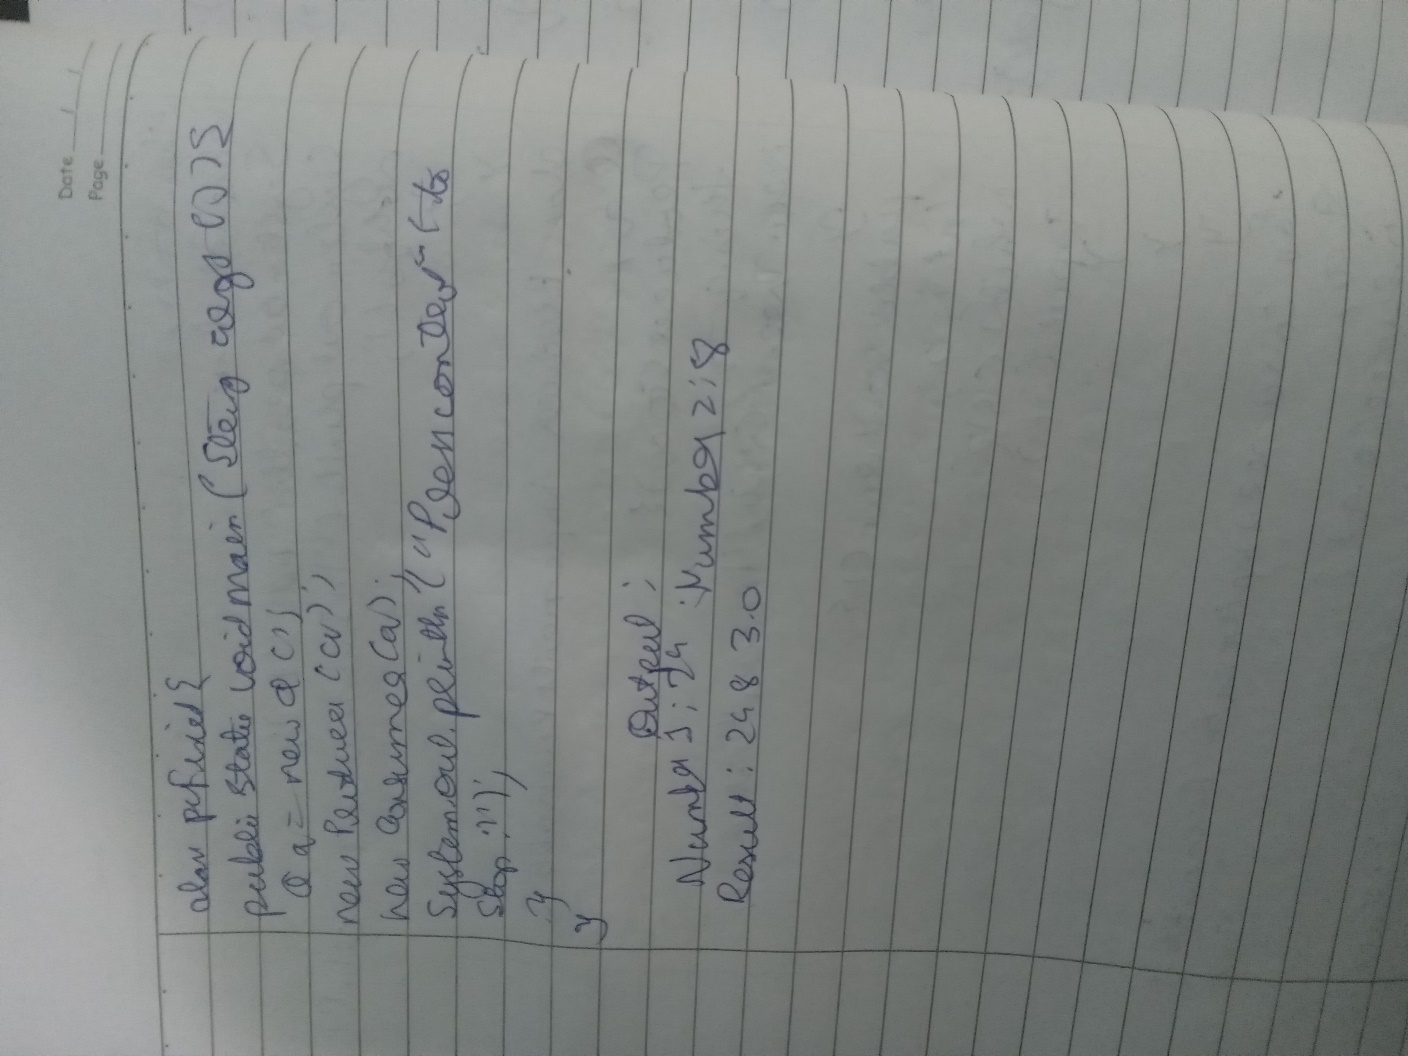 Date
Page
class pcfixed {
public static void main (String args [] ) {
Q a = new Q ();
new Producer (a);
new Consumer (a);
System.out.println ("Press control - c to
stop.");
}
}
Output :
Number 1 : 24 Number 2 : 8
Result : 24 8 3.0